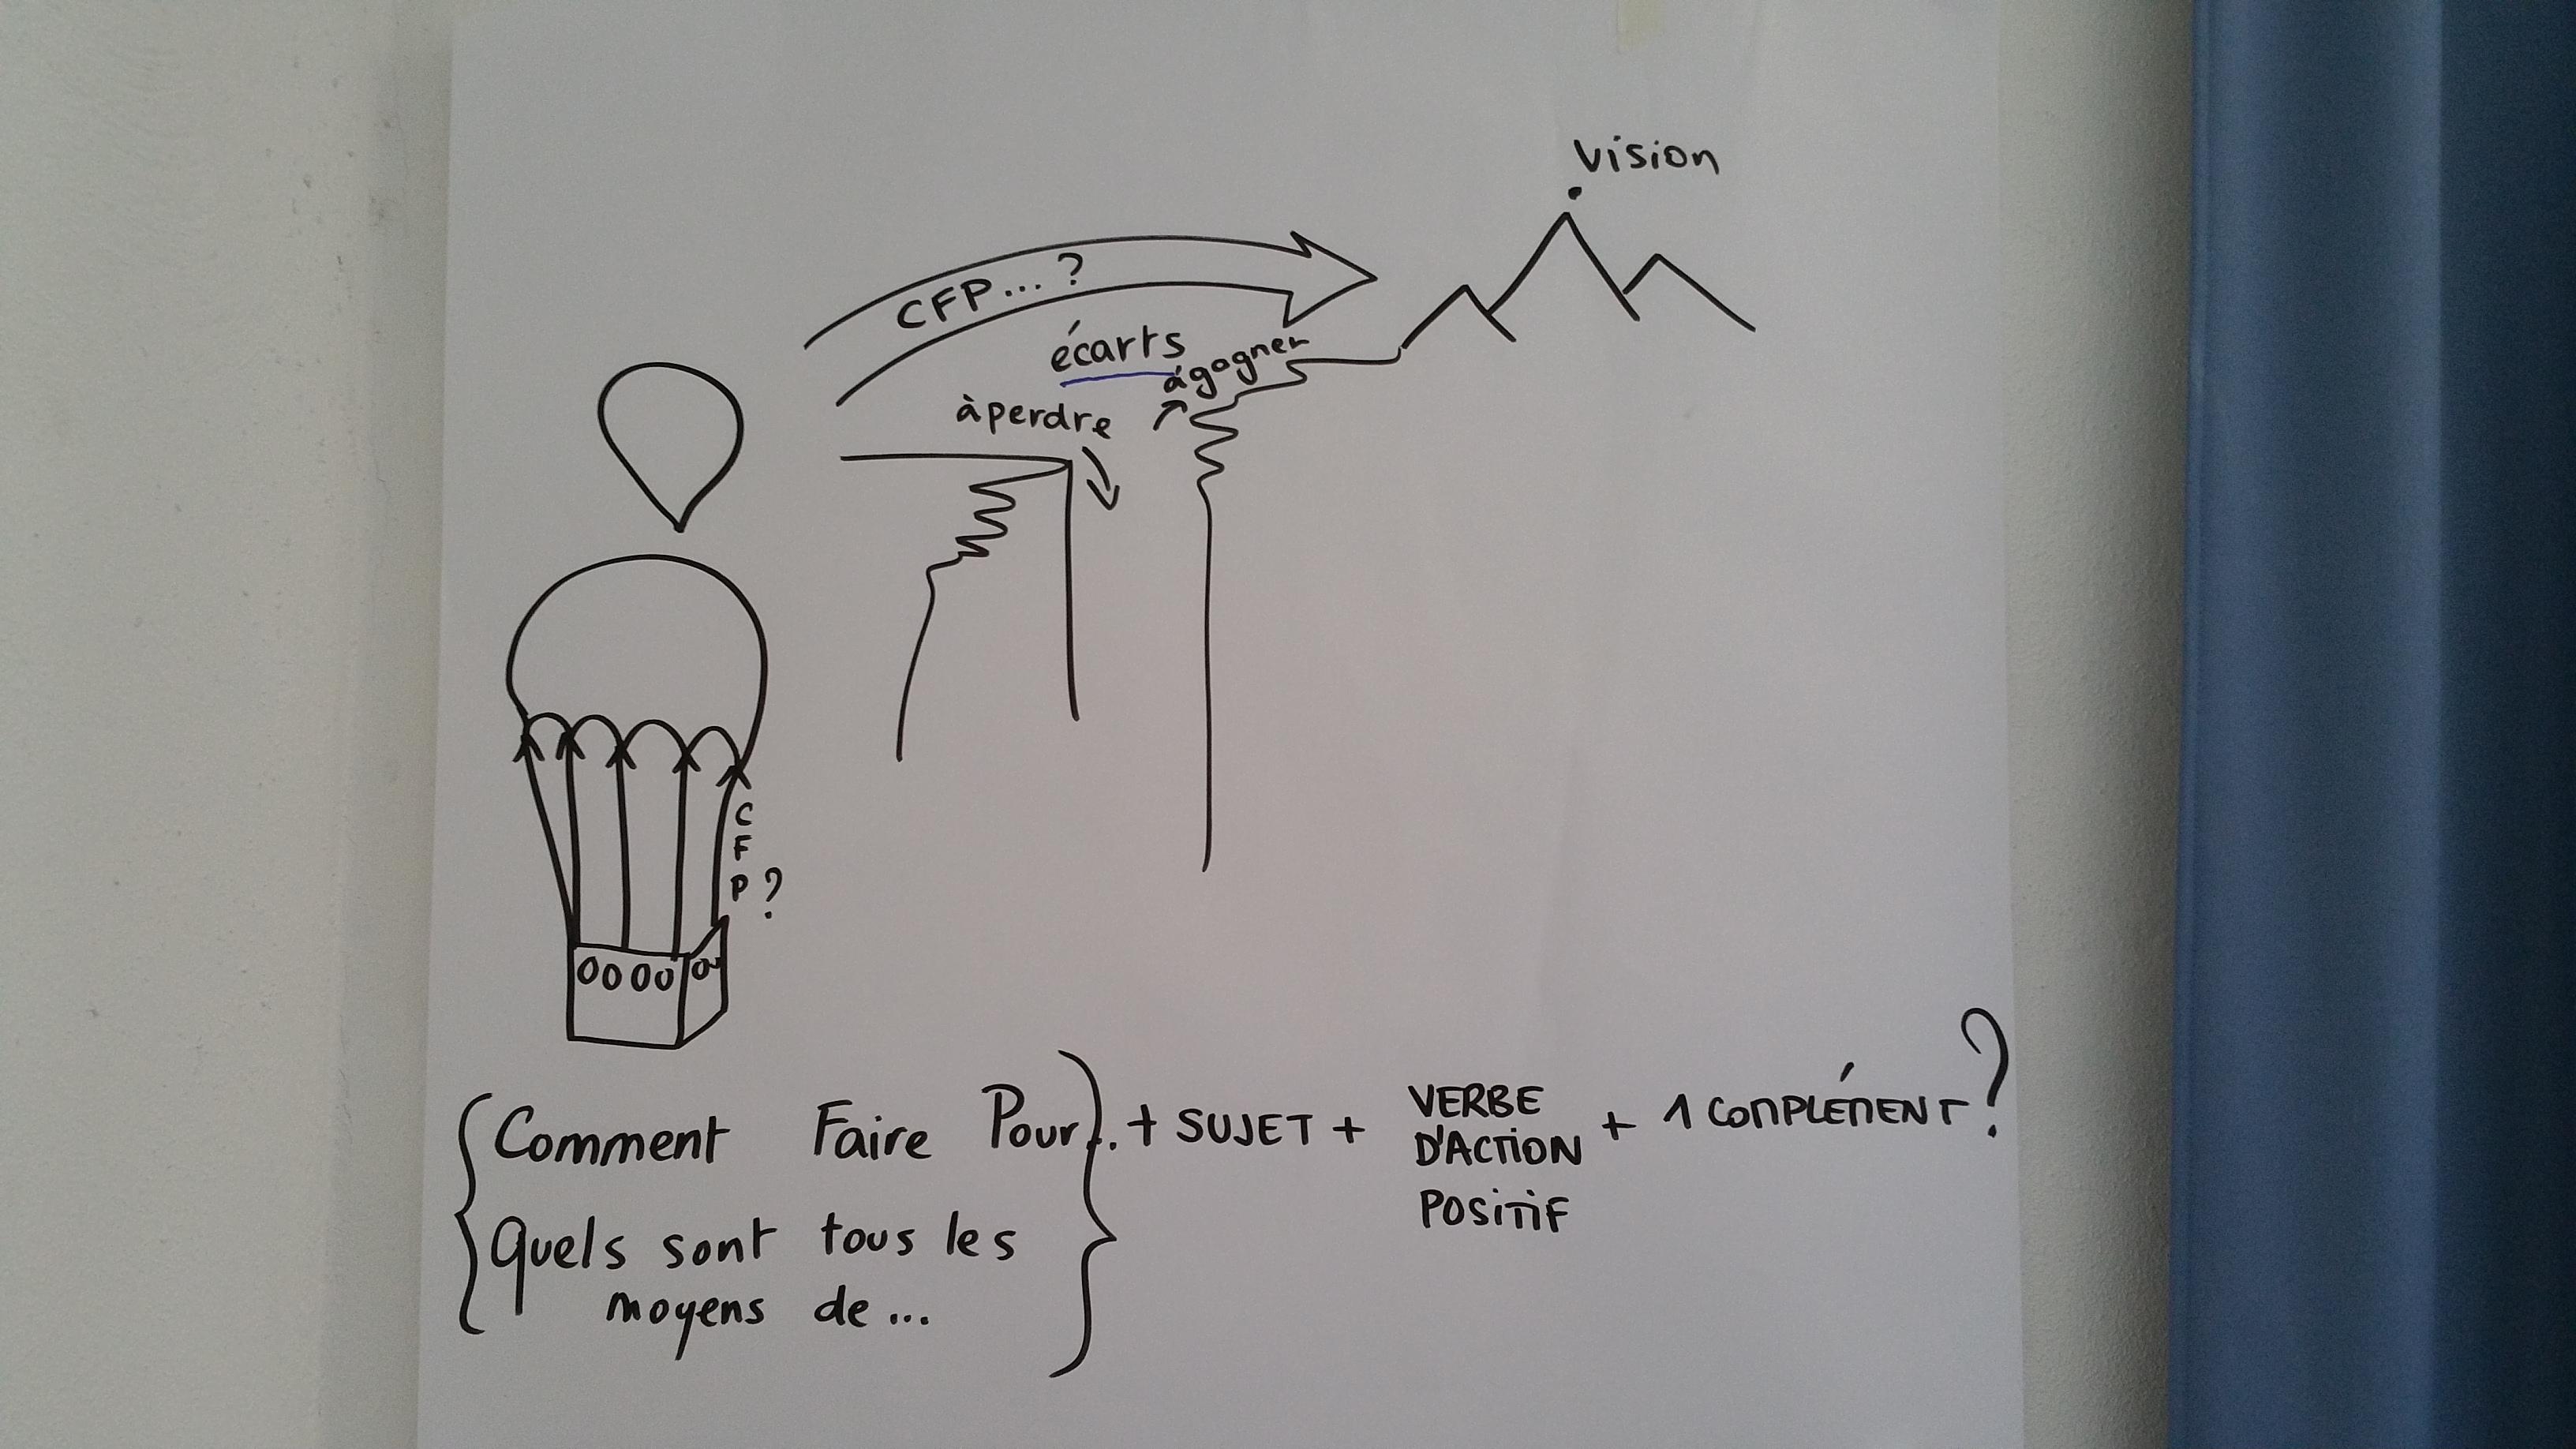 vision
CFP...?
écarts
à gagner
à perdre
C
F
P ?
Comment Faire Pour... + SUJET + VERBE D'ACTION POSITIF + 1 COMPLÉMENT ?
Quels sont tous les
moyens de...